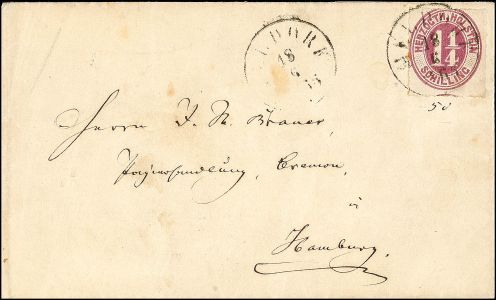 HERZOGTH. HOLSTEIN
1 1/4
SCHILLING
18
6
50
Herrn J. N. Brauer,
Papierhandlung, Cremon,
in
Hamburg.